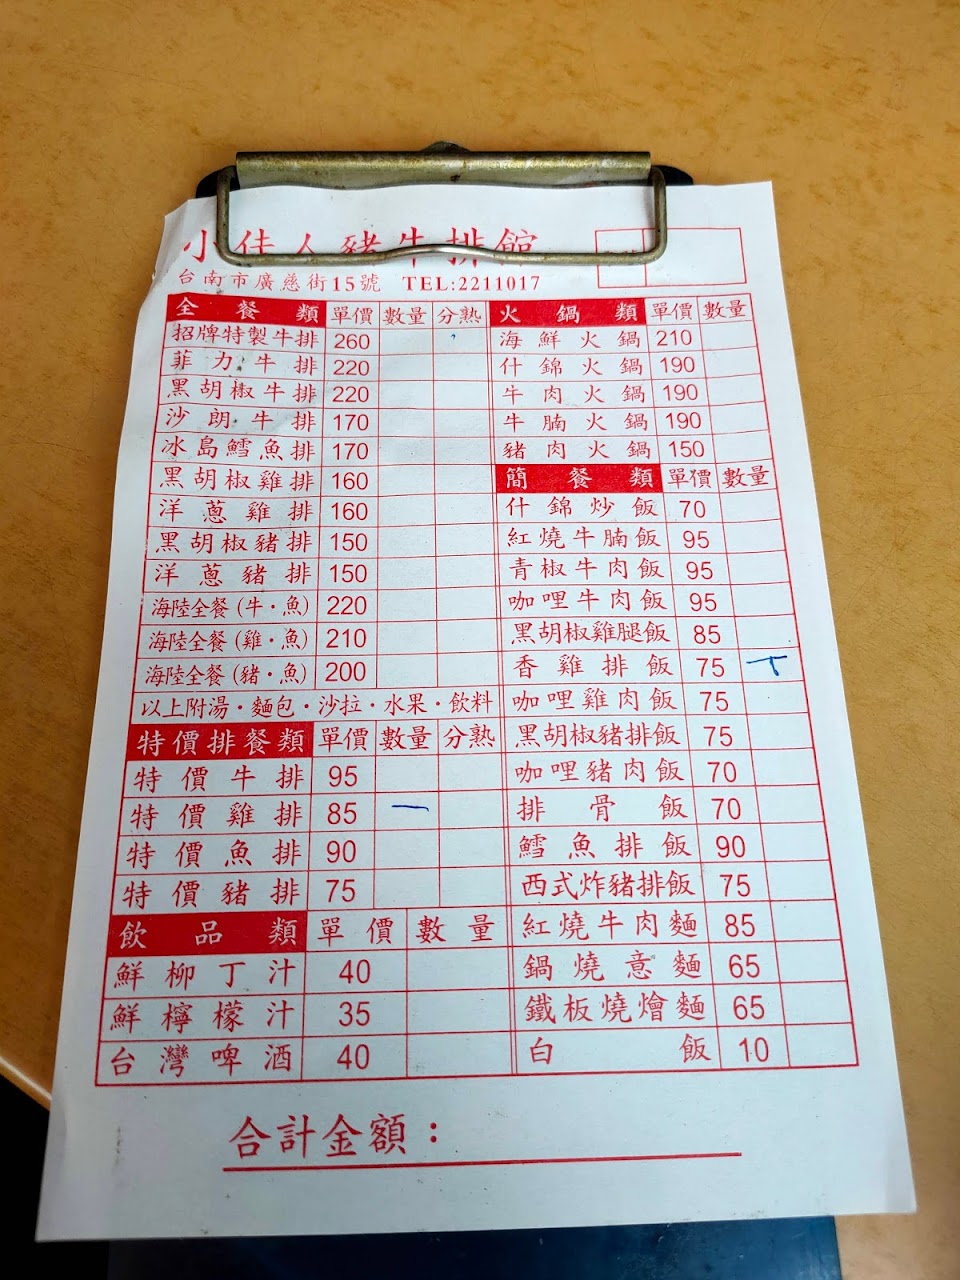 小佳人豬牛排館
台南市廣慈街15號 TEL:2211017
全餐類 單價 數量 分熟
招牌特製牛排 260
菲力牛排 220
黑胡椒牛排 220
沙朗牛排 170
冰島鱈魚排 170
黑胡椒雞排 160
洋蔥雞排 160
黑胡椒豬排 150
洋蔥豬排 150
海陸全餐(牛·魚) 220
海陸全餐(雞·魚) 210
海陸全餐(豬·魚) 200
以上附湯·麵包·沙拉·水果·飲料
特價排餐類 單價 數量 分熟
特價牛排 95
特價雞排 85 一
特價魚排 90
特價豬排 75
飲品類 單價 數量
鮮柳丁汁 40
鮮檸檬汁 35
台灣啤酒 40
火鍋類 單價 數量
海鮮火鍋 210
什錦火鍋 190
牛肉火鍋 190
牛腩火鍋 190
豬肉火鍋 150
簡餐類 單價 數量
什錦炒飯 70
紅燒牛腩飯 95
青椒牛肉飯 95
咖哩牛肉飯 95
黑胡椒雞腿飯 85
香雞排飯 75 丅
咖哩雞肉飯 75
黑胡椒豬排飯 75
咖哩豬肉飯 70
排骨飯 70
鱈魚排飯 90
西式炸豬排飯 75
紅燒牛肉麵 85
鍋燒意麵 65
鐵板燒燴麵 65
白飯 10
合計金額：